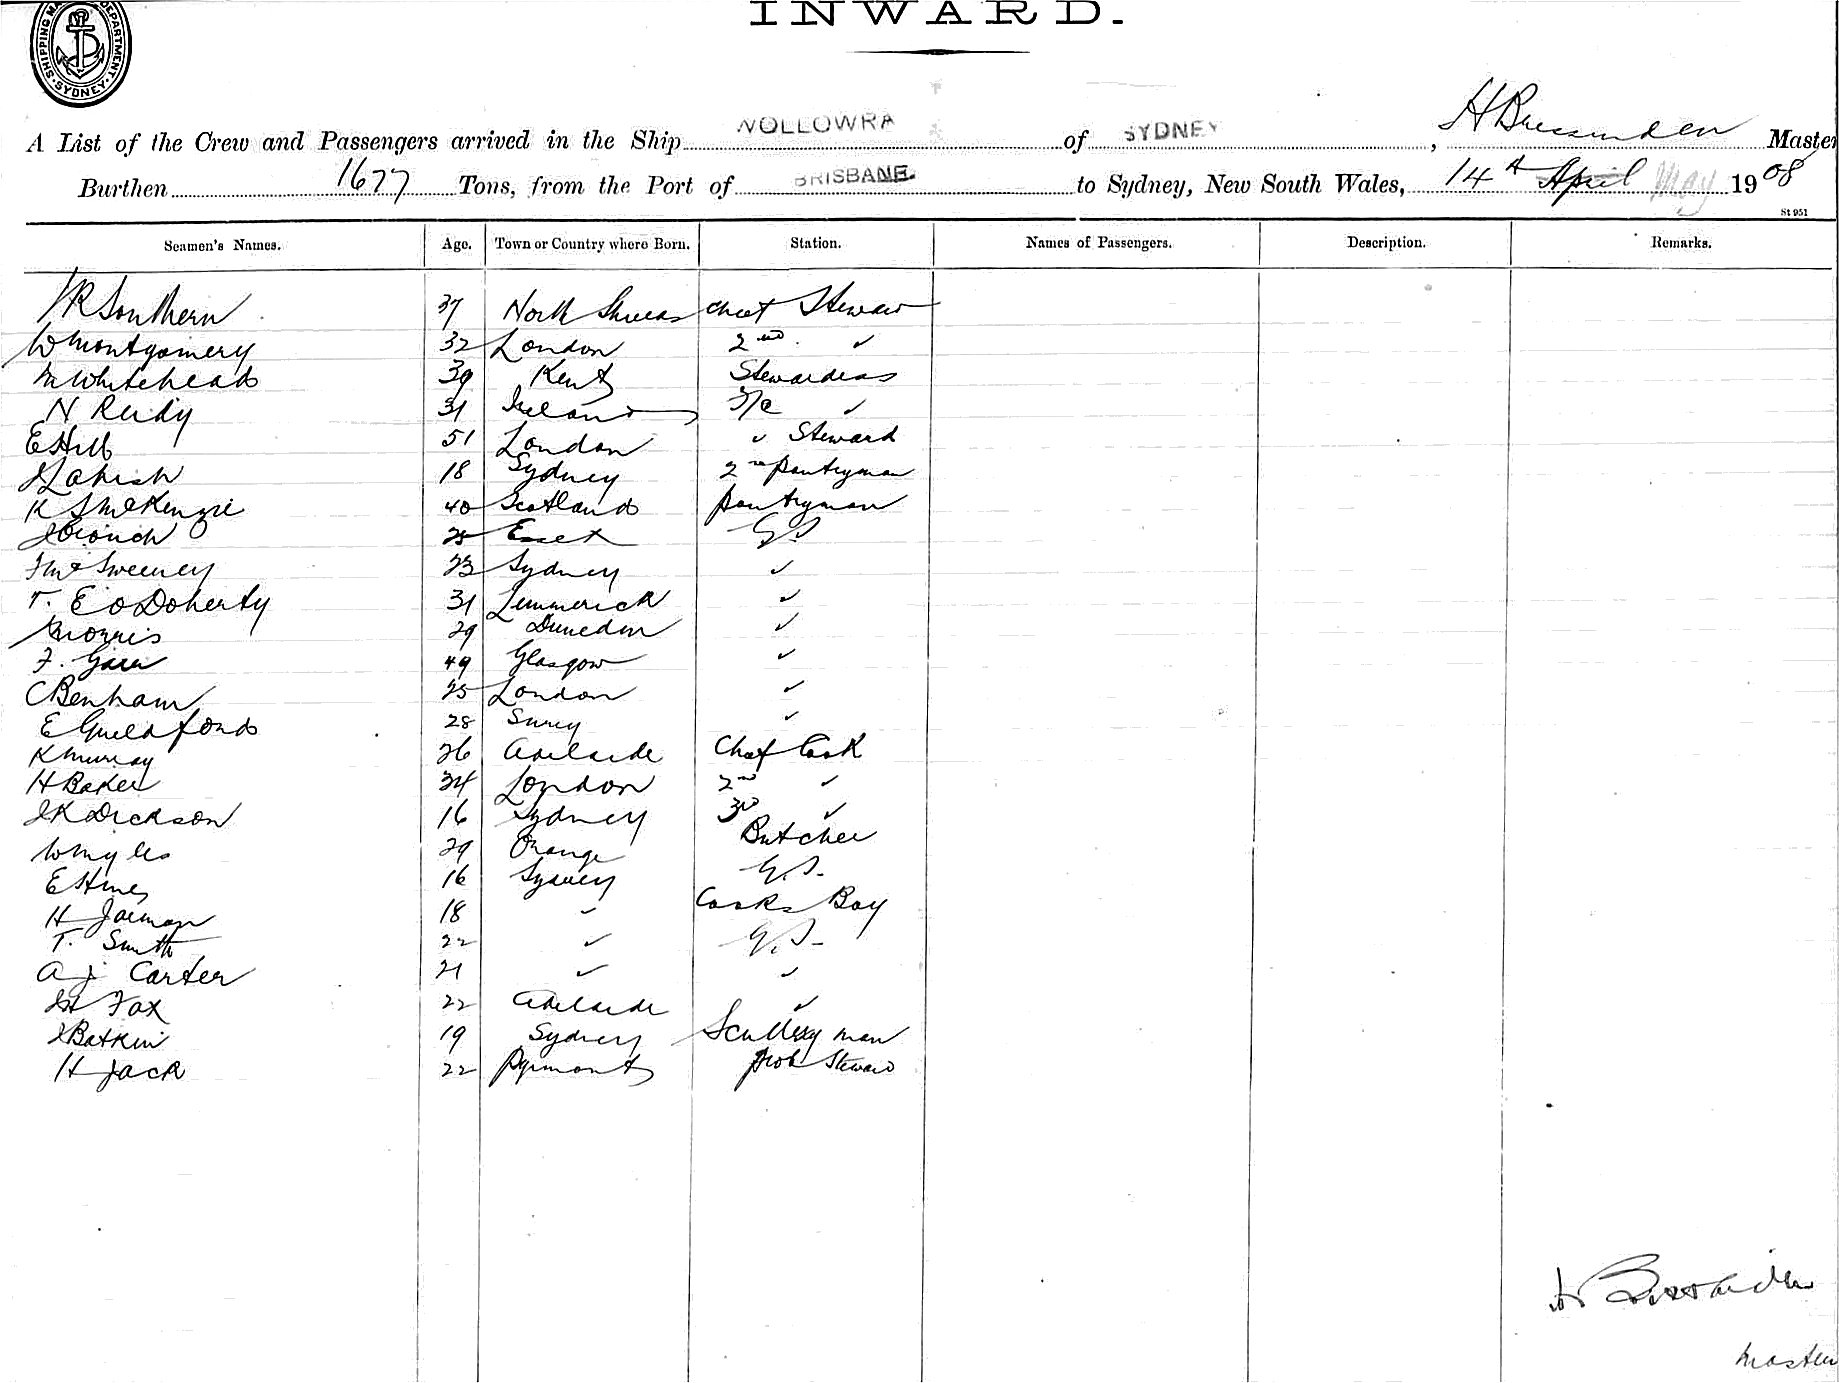 INWARD.
SHIPPING MA DEPARTMENT. SYDNEY.
A List of the Crew and Passengers arrived in the Ship WOLLOWRA of SYDNEY, H Master
Burthen 1677 Tons, from the Port of BRISBANE. to Sydney, New South Wales, 14th April May 1908
St 951
Seamen's Names. Age. Town or Country where Born. Station. Names of Passengers. Description. Remarks.
Southern 37 North Shields Chief Steward
W Montgomery 32 London 2nd ✓
M Whitehead 39 Kent Stewardess
N Reidy 31 Ireland ✓
E Hill 51 London ✓ Steward
18 Sydney 2nd pantryman
McKenzie 40 Scotland pantryman
J Crouch 25 Essex G.S
McSweeney 23 Sydney ✓
T. E O Doherty 31 Limmerick ✓
Morris 29 Dunedin ✓
F. 49 Glasgow ✓
C Benham 25 London ✓
E Guildford 28 Surry ✓
K Murray 26 Adelaide Chef Cook
H Baker 34 London 2nd ✓
J K Dickson 16 Sydney 3rd ✓
W Myles 29 Orange Butcher
E Hines 16 Sydney G.S.
H Jarman 18 ✓ Cooks Boy
T. Smith 22 ✓ G.S-
A J Carter 21 ✓ ✓
Fox 22 Adelaide ✓
J Batkin 19 Sydney Scullery man
H Jack 22 Pyrmont Steward
H
Master